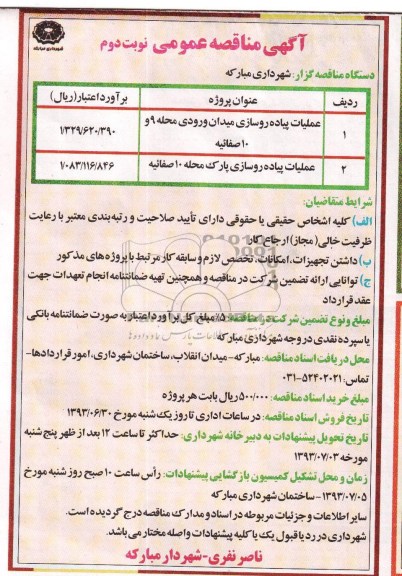 شهرداری مبارکه
آگهی مناقصه عمومی نوبت دوم
دستگاه مناقصه گزار: شهرداری مبارکه
ردیف عنوان پروژه برآورد اعتبار (ریال)
۱ عملیات پیاده روسازی میدان ورودی محله ۹ و ۱/۳۲۹/۶۲۰/۳۹۰
۱۰ صفائیه
۲ عملیات پیاده روسازی پارک محله ۱۰ صفائیه ۱/۰۸۳/۱۱۶/۸۴۶
شرایط متقاضیان:
الف) کلیه اشخاص حقیقی یا حقوقی دارای تأیید صلاحیت و رتبه بندی معتبر با رعایت
ظرفیت خالی (مجاز) ارجاع کار
ب) داشتن تجهیزات، امکانات، تخصص لازم و سابقه کار مرتبط با پروژه های مذکور
ج) توانایی ارائه تضمین شرکت در مناقصه و همچنین تهیه ضمانتنامه انجام تعهدات جهت
عقد قرارداد
مبلغ و نوع تضمین شرکت در مناقصه: ۵٪ مبلغ کل برآورد اعتبار به صورت ضمانتنامه بانکی
یا سپرده نقدی در وجه شهرداری مبارکه
محل دریافت اسناد مناقصه: مبارکه - میدان انقلاب، ساختمان شهرداری، امور قراردادها -
تماس: ۵۲۴۰۲۰۲۱-۰۳۱
مبلغ خرید اسناد مناقصه: ۵۰۰/۰۰۰ ریال بابت هر پروژه
تاریخ فروش اسناد مناقصه: در ساعات اداری تا روز یک شنبه مورخ ۱۳۹۳/۰۶/۳۰
تاریخ تحویل پیشنهادات به دبیرخانه شهرداری: حداکثر تا ساعت ۱۲ بعد از ظهر پنج شنبه
مورخه ۱۳۹۳/۰۷/۰۳
زمان و محل تشکیل کمیسیون بازگشایی پیشنهادات: رأس ساعت ۱۰ صبح روز شنبه مورخ
۱۳۹۳/۰۷/۰۵ - ساختمان شهرداری مبارکه
سایر اطلاعات و جزئیات مربوطه در اسناد و مدارک مناقصه درج گردیده است.
شهرداری در رد یا قبول یک یا کلیه پیشنهادات واصله مختار می باشد.
ناصر نفری - شهردار مبارکه